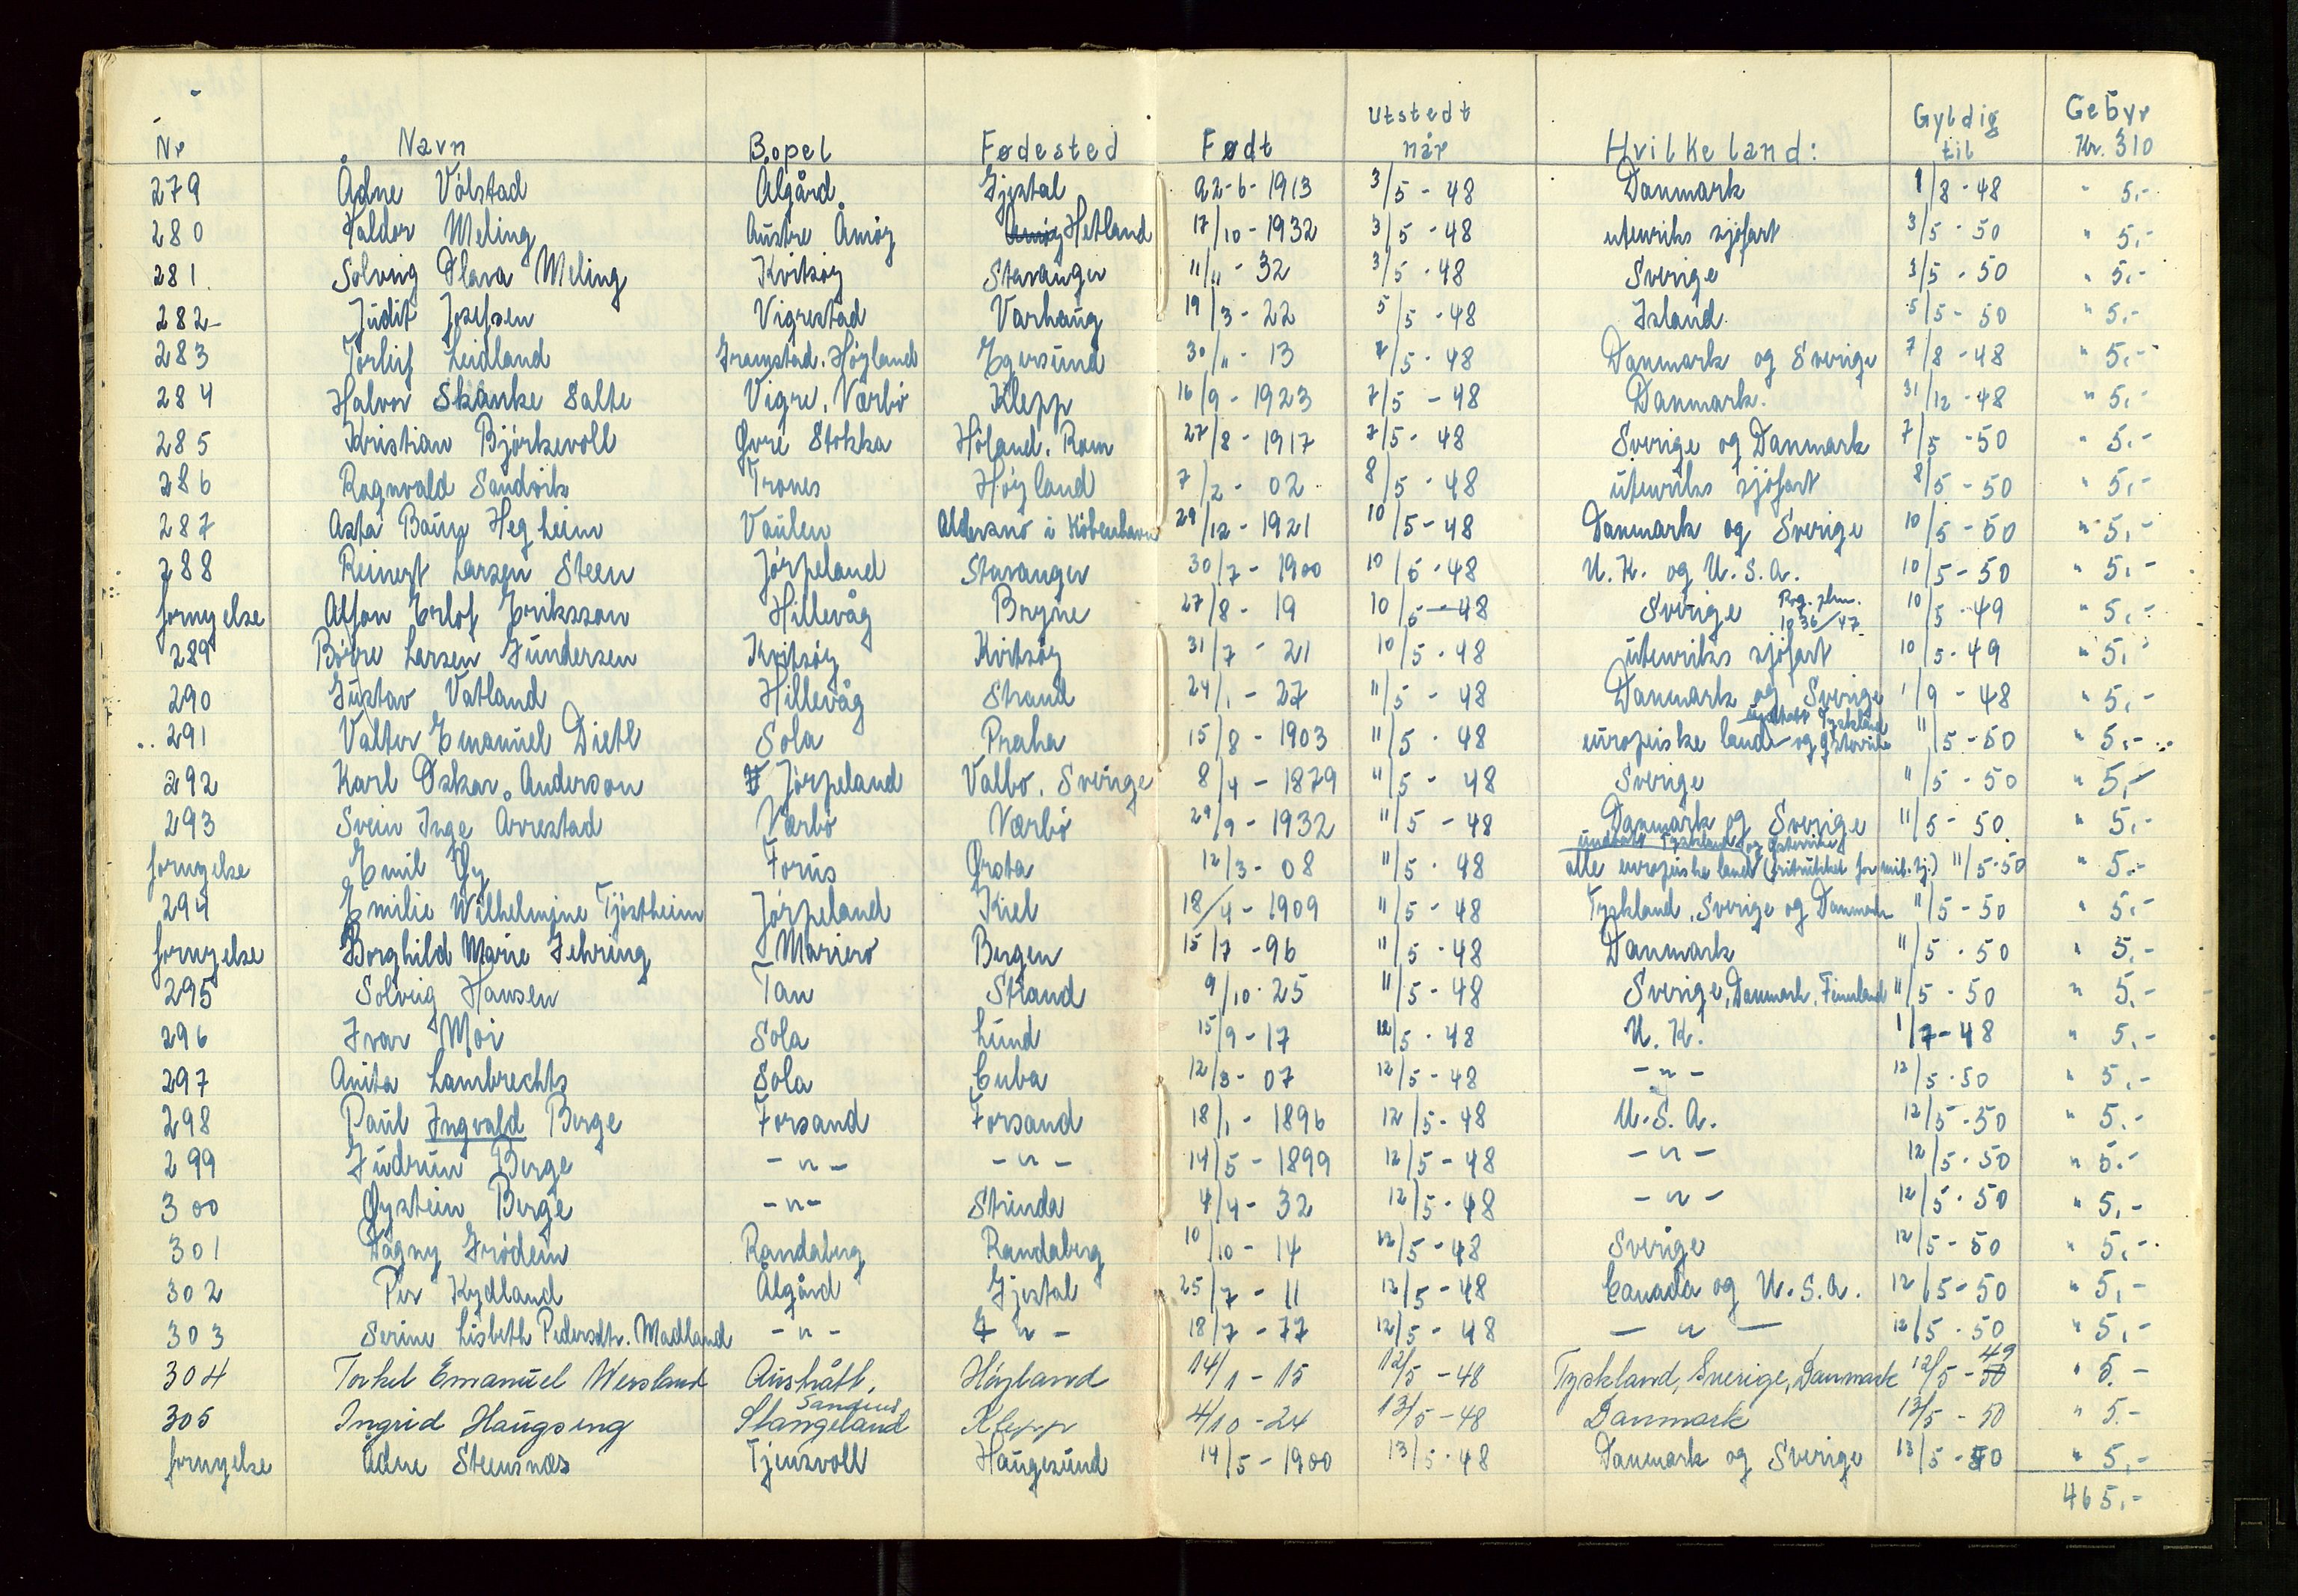 Nr Navn Bopel Fødested Født Utstedt når Hvilke land: Gyldig til Gebyr Kr. 310
279 Ådne Vølstad Ålgård Gjestal 22-6-1913 3/5-48 Danmark 1/8-48 " 5,-
280 Haldor Meling Austre Åmøy Hetland 17/10-1932 3/5-48 utenriks sjøfart 3/5-50 " 5,-
281. Solveig Olava Meling Kvitsøy Stavanger 11/11-32 3/5-48 Sverige 3/5-50 " 5,-
282 Judit Josefsen Vigrestad Varhaug 19/3-22 5/5-48 Island 5/5-50 " 5,-
283 Torleif Leidland Gramstad. Høyland Egersund 30/11-13 7/5-48 Danmark og Sverige 7/8-48 " 5,-
284 Halvor Skanke Salte Vigre, Nærbø Klepp 16/9-1923 7/5-48 Danmark. 31/12-48 " 5,-
285 Kristian Bjørkevoll Øvre Stokka Høland. Rom 27/8-1917 7/5-48 Sverige og Danmark 7/5-50 " 5,-
286 Ragnvald Sandvik Trones Høyland 7/2-02 8/5-48 utenriks sjøfart 8/5-50 " 5,-
287 Asta Baun Hegheim Vaulen Aldersro i København 29/12-1921 10/5-48 Danmark og Sverige 10/5-50 " 5,-
288 Reinert Larsen Steen Jørpeland Stavanger 30/7-1900 10/5-48 U.K. og U.S.A. 10/5-50 " 5,-
fornyelse Alfon Erlof Eriksson Hillevåg Bryne 27/8-19 10/5-48 Sverige 1036/47 10/5-49 " 5,-
289 Børre Larsen Gundersen Kvitsøy Kvitsøy 31/7-21 10/5-48 utenriks sjøfart 10/5-49 " 5,-
290 Gustav Vatland Hillevåg Strand 24/1-27 11/5-48 Danmark og Sverige 1/9-48 " 5,-
291 Valter Emanuel Dietl Sola Praha 15/8-1903 11/5-48 europeiske land unntatt Tyskland og Østerrike 11/5-50 " 5,-
292 Karl Oskar Anderson Jørpeland Valbo, Sverige 8/4-1879 11/5-48 Sverige 11/5-50 " 5,-
293 Svein Inge Årrestad Nærbø Nærbø 29/9-1932 11/5-48 Danmark og Sverige 11/5-50 " 5,-
fornyelse Emil Øy Forus Ørsta 12/3-08 11/5-48 alle europeiske land unntatt Tyskland og Østerrike (fritatt for mil. tj.) 11/5-50 " 5,-
294 Emilie Wilhelmine Tjøstheim Jørpeland Kiel 18/4-1909 11/5-48 Tyskland, Sverige og Danmark 11/5-50 " 5,-
fornyelse Borghild Marie Fehring Mariero Bergen 15/7-96 11/5-48 Danmark 11/5-50 " 5,-
295 Solveig Hansen Tau Strand 9/10-25 11/5-48 Sverige, Danmark, Finnland 11/5-50 " 5,-
296 Ivar Moi Sola Lund 15/9-17 12/5-48 U.K. 1/7-48 " 5,-
297 Anita Lambrechts Sola Cuba 12/3-07 12/5-48 -"- 12/5-50 " 5,-
298 Paul Ingvald Berge Forsand Forsand 18/1-1896 12/5-48 U.S.A. 12/5-50 " 5,-
299 Gudrun Berge -"- -"- 14/5-1899 12/5-48 -"- 12/5-50 " 5,-
300 Øystein Berge -"- Strinda 4/4-32 12/5-48 -"- 12/5-50 " 5,-
301 Dagny Grødem Randaberg Randaberg 10/10-14 12/5-48 Sverige 12/5-50 " 5,-
302 Per Kydland Ålgård Gjestal 25/7-11 12/5-48 Canada og U.S.A. 12/5-50 " 5,-
303 Serine Lisbeth Pedersdtr. Madland -"- -"- 18/7-77 12/5-48 -"- 12/5-50 " 5,-
304 Torkel Emanuel Wersland Austrått, Høyland 14/1-15 12/5-48 Tyskland, Sverige, Danmark 12/5-49 " 5.-
305 Ingrid Haugseng Stangeland Sandnes Klepp 4/10-24 13/5-48 Danmark 13/5-50 " 5.-
fornyelse Ådne Steensnæs Tjensvoll Haugesund 14/5-1900 13/5-48 Danmark og Sverige 13/5-50 " 5,-
465,-